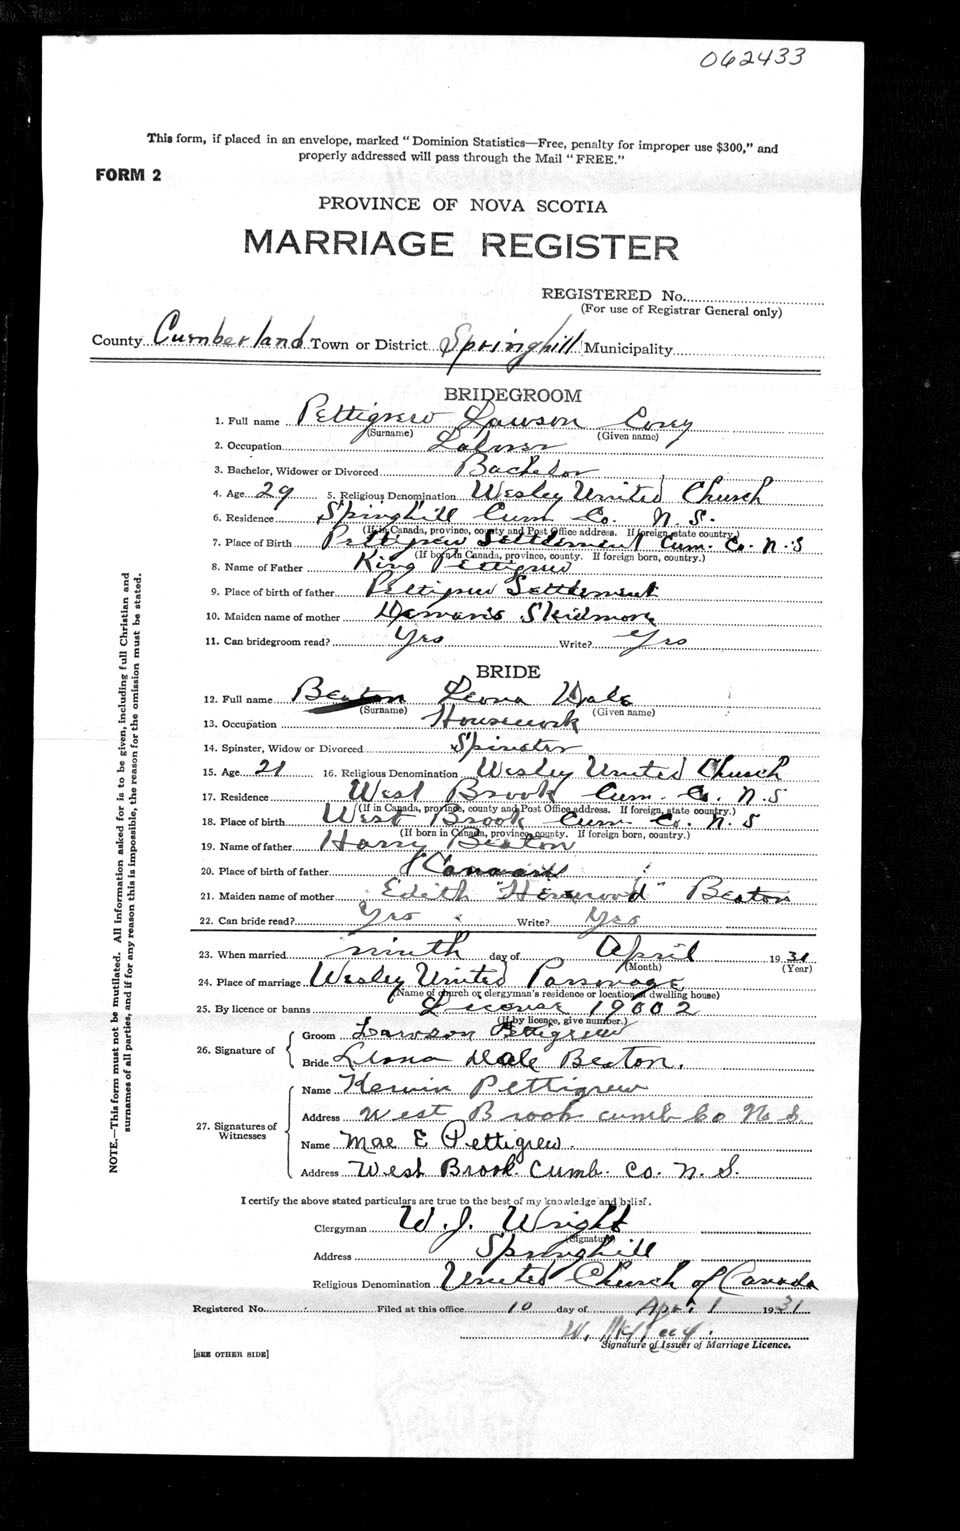 062433
This form, if placed in an envelope, marked "Dominion Statistics—Free, penalty for improper use $300," and
properly addressed will pass through the Mail "FREE."
FORM 2
PROVINCE OF NOVA SCOTIA
MARRIAGE REGISTER
REGISTERED No.
(For use of Registrar General only)
County Cumberland Town or District Springhill Municipality
BRIDEGROOM
1. Full name Pettigrew Lawson Corey
(Surname) (Given name)
2. Occupation Laborer
3. Bachelor, Widower or Divorced Bachelor
4. Age 29 5. Religious Denomination Wesley United Church
6. Residence Springhill Cum Co. N.S.
(If in Canada, province, county and Post Office address. If foreign, state country.)
7. Place of Birth Pettigrew Settlement Cum. Co. N.S
(If born in Canada, province, county. If foreign born, country.)
8. Name of Father King Pettigrew
9. Place of birth of father Pettigrew Settlement
10. Maiden name of mother Damaris Skidmore
11. Can bridegroom read? Yes Write? Yes
BRIDE
12. Full name Beaton Leona Dale
(Surname) (Given name)
13. Occupation Housework
14. Spinster, Widow or Divorced Spinster
15. Age 21 16. Religious Denomination Wesley United Church
17. Residence West Brook Cum. Co. N.S
(If in Canada, province, county and Post Office address. If foreign, state country.)
18. Place of birth West Brook Cum. Co. N.S
(If born in Canada, province, county. If foreign born, country.)
19. Name of father Harry Beaton
20. Place of birth of father
21. Maiden name of mother Edith " " Beaton
22. Can bride read? Yes Write? Yes
23. When married ninth day of April 1931
(Month) (Year)
24. Place of marriage Wesley United Parsonage
(Name of church or clergyman's residence or location of dwelling house)
25. By licence or banns License 19002
(If by licence, give number.)
26. Signature of
Groom Lawson Pettigrew
Bride Leona Dale Beaton.
27. Signatures of Witnesses
Name Kerwin Pettigrew
Address West Brook cumb Co N.S.
Name Mae E Pettigrew.
Address West Brook. Cumb. Co. N.S.
I certify the above stated particulars are true to the best of my knowledge and belief.
Clergyman W. J. Wright
(Signature)
Address Springhill
Religious Denomination United Church of Canada
Registered No. Filed at this office 10 day of April 1931
W.
Signature of Issuer of Marriage Licence.
[SEE OTHER SIDE]
NOTE.—This form must not be mutilated. All information asked for is to be given, including full Christian and
surnames of all parties, and if for any reason this is impossible, the reason for the omission must be stated.